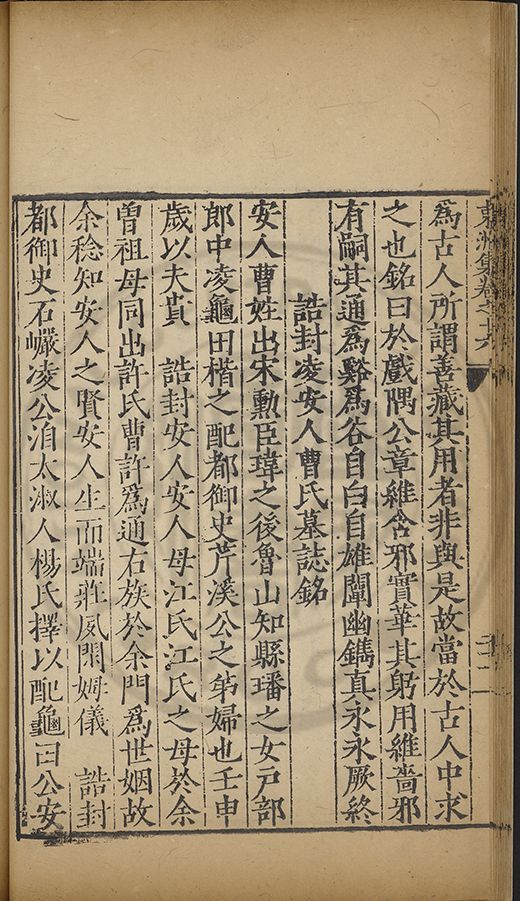 東洲集卷之十六
二十二
爲古人所謂善藏其用者非與是故當於古人中求
之也銘曰於戲隅公章維含邪實華其躬用維嗇邪
有嗣其通爲谿爲谷自白自雄闡幽鐫真永永厥終
誥封凌安人曹氏墓誌銘
安人曹姓出宋勳臣瑋之後魯山知縣璠之女戸部
郎中凌龜田楷之配都御史芹溪公之第婦也壬申
歲以夫貴 誥封安人安人母江氏江氏之母於余
曾祖母同出許氏曹許爲通右族於余門爲世姻故
余稔知安人之賢安人生而端莊夙閑姆儀 誥封
都御史石巘凌公洎太淑人楊氏擇以配龜田公安